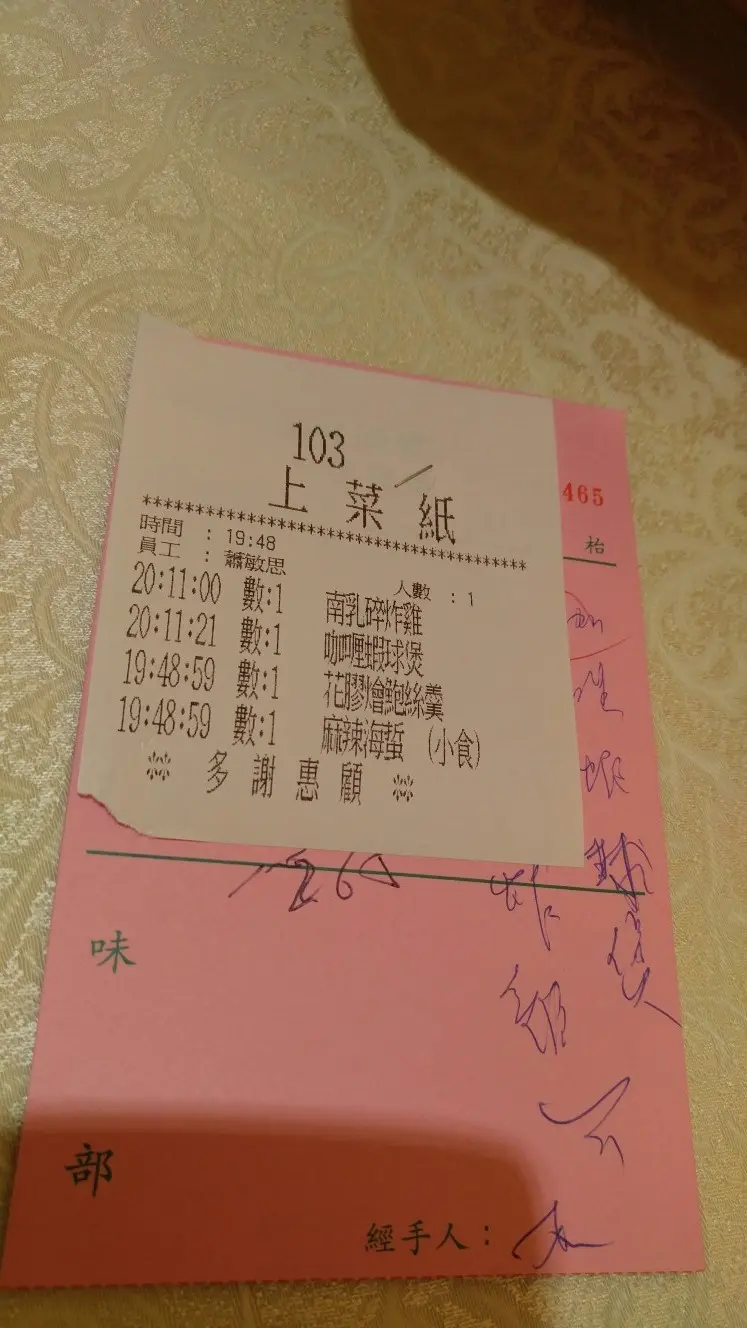 103
上菜紙
**********************************
時間 : 19:48
員工 : 蕭敏思 人數 : 1
20:11:00 數:1 南乳碎炸雞
20:11:21 數:1 咖喱蝦球煲
19:48:59 數:1 花膠燴鮑絲羹
19:48:59 數:1 麻辣海蜇 (小食)
※ 多謝惠顧 ※
465
枱
味
部
經手人：